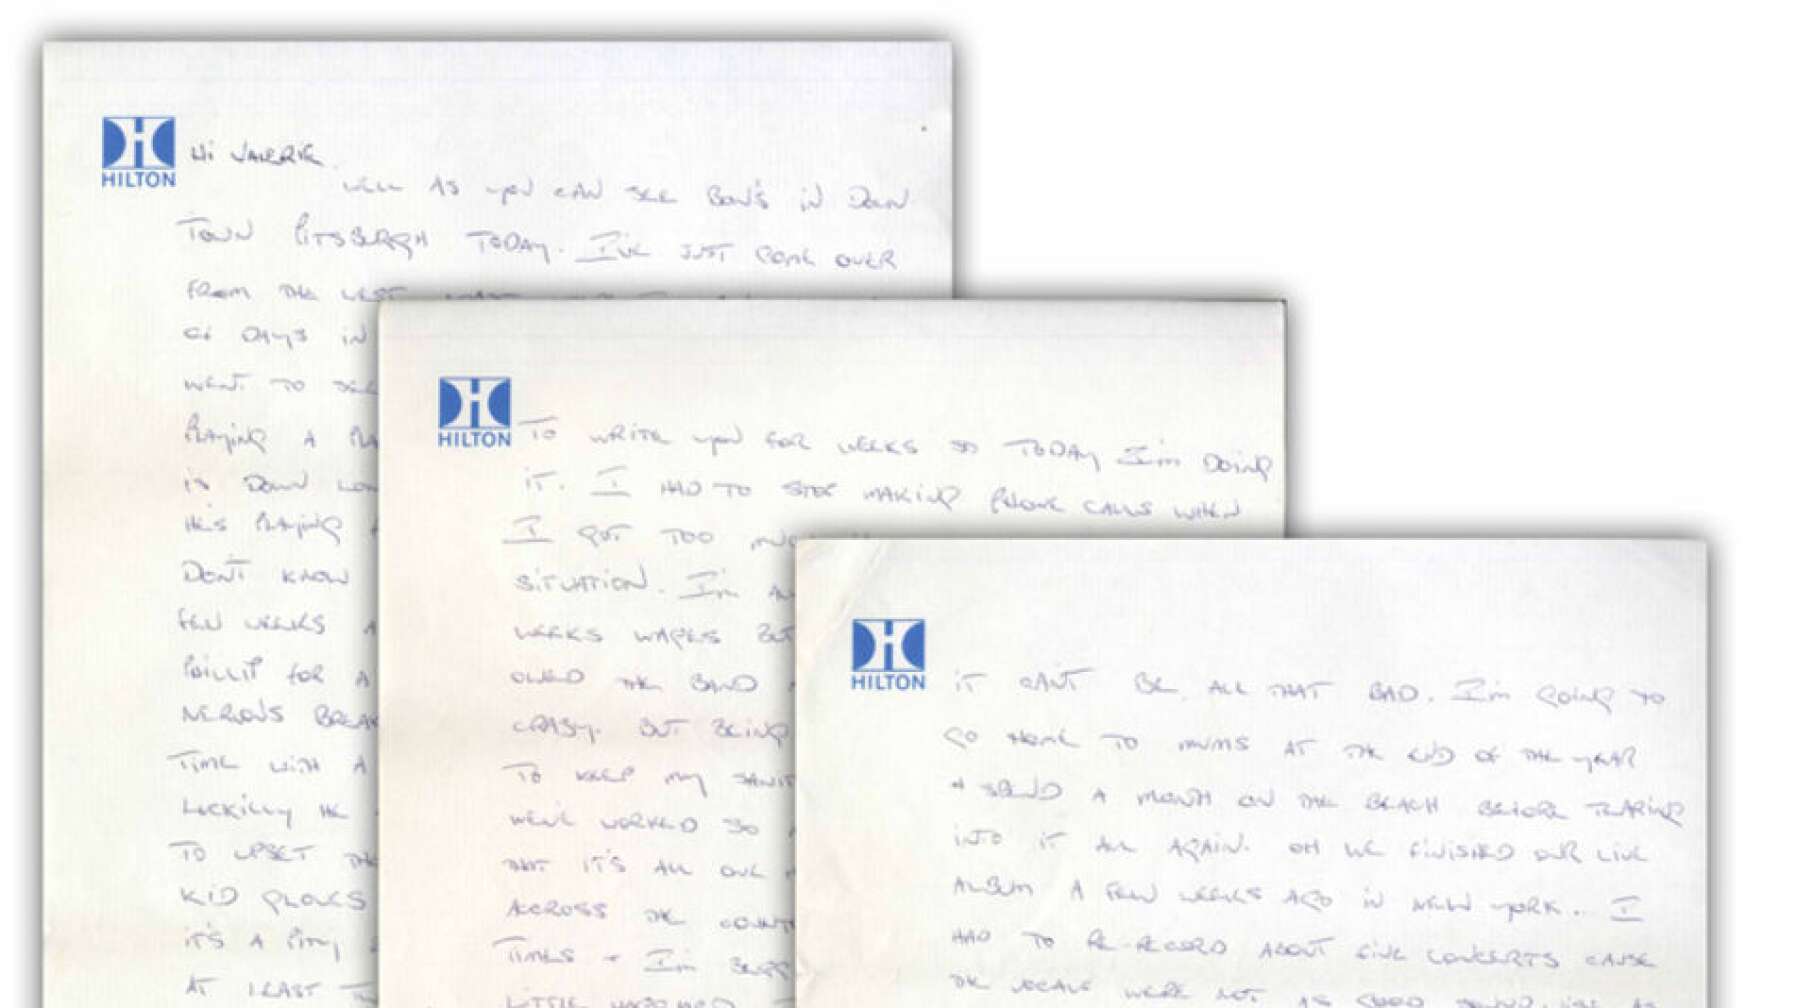 HILTON
Hi VALERIE
WELL AS you CAN SEE BON'S iN DOWN
TOWN PiTSBURGH TODAY. I'VE JUST COME OVER
FROM THE WEST
DAYS iN
WENT TO SEE
PLAYiNG A
iS DOWN
HE'S PLAYiNG
DON'T KNOW
FEW WEEKS
FOR A
NERVOUS
TiME WiTH A
LUCKiLLY HE
TO UPSET THE
KiD GLOVES
iT'S A PiTY
AT LEAST
HILTON
TO WRiTE you FOR WEEKS SO TODAY I'm DOiNG
iT. I HAD TO STOP MAKiNG PHONE CALLS WHEN
I GOT TOO
SiTUATiON. I'm
WEEKS WAGES BUT
OWED THE BAND
CRASY. BUT BEiNG
TO KEEP my
WE'VE WORKED SO
THAT iT'S ALL OUR
ACROSS THE
TiMES + I'm
LiTTLE
HILTON
iT CAN'T BE ALL THAT BAD. I'm GOiNG TO
GO HOME TO MUMS AT THE END OF THE YEAR
+ SPEND A MONTH ON THE BEACH BEFORE TEARiNG
iNTO iT ALL AGAiN. OH WE FiNiSHED OUR LiVE
ALBUM A FEW WEEKS AGO iN NEW YORK. I
HAD TO RE-RECORD ABOUT FiVE CONCERTS CAUSE
THE VOCALS WERE NOT AS GOOD